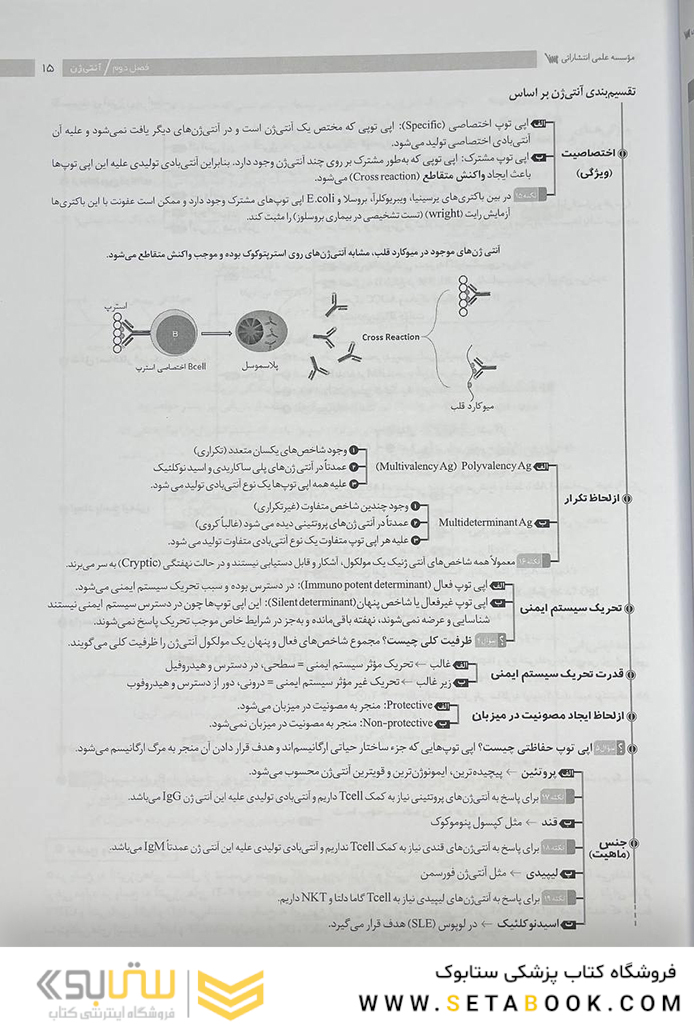 مؤسسه علمی انتشاراتی
فصل دوم / آنتی‌ژن ۱۵
تقسیم‌بندی آنتی‌ژن بر اساس
اختصاصیت (ویژگی)
الف اپی توپ اختصاصی (Specific): اپی توپی که مختص یک آنتی‌ژن است و در آنتی‌ژن‌های دیگر یافت نمی‌شود و علیه آن
آنتی‌بادی اختصاصی تولید می‌شود.
ب اپی توپ مشترک: اپی توپی که به‌طور مشترک بر روی چند آنتی‌ژن وجود دارد. بنابراین آنتی‌بادی تولیدی علیه این اپی توپ‌ها
باعث ایجاد واکنش متقاطع (Cross reaction) می‌شود.
نکته ۱۵ در بین باکتری‌های یرسینیا، ویبریوکلرا، بروسلا و E.coli اپی توپ‌های مشترک وجود دارد و ممکن است عفونت با این باکتری‌ها
آزمایش رایت (wright) (تست تشخیصی در بیماری بروسلوز) را مثبت کند.
آنتی ژن‌های موجود در میوکارد قلب، مشابه آنتی‌ژن‌های روی استرپتوکوک بوده و موجب واکنش متقاطع می‌شود.
استرپ
B
Bcell اختصاصی استرپ
پلاسموسل
Cross Reaction
میوکارد قلب
از لحاظ تکرار
الف Polyvalency Ag (Multivalency Ag)
۱ وجود شاخص‌های یکسان متعدد (تکراری)
۲ عمدتاً در آنتی ژن‌های پلی ساکاریدی و اسید نوکلئیک
۳ علیه همه اپی توپ‌ها یک نوع آنتی‌بادی تولید می شود.
ب Multideterminant Ag
۱ وجود چندین شاخص متفاوت (غیرتکراری)
۲ عمدتاً در آنتی ژن‌های پروتئینی دیده می شود (غالباً کروی)
۳ علیه هر اپی توپ متفاوت یک نوع آنتی‌بادی متفاوت تولید می شود.
نکته ۱۶ معمولاً همه شاخص‌های آنتی ژنیک یک مولکول، آشکار و قابل دستیابی نیستند و در حالت نهفتگی (Cryptic) به سر می‌برند.
تحریک سیستم ایمنی
الف اپی توپ فعال (Immuno potent determinant): در دسترس بوده و سبب تحریک سیستم ایمنی می‌شود.
ب اپی توپ غیرفعال یا شاخص پنهان (Silent determinant): این اپی توپ‌ها چون در دسترس سیستم ایمنی نیستند
شناسایی و عرضه نمی‌شوند، نهفته باقی‌مانده و به‌جز در شرایط خاص موجب تحریک پاسخ نمی‌شوند.
؟ سؤال ظرفیت کلی چیست؟ مجموع شاخص‌های فعال و پنهان یک مولکول آنتی‌ژن را ظرفیت کلی می‌گویند.
قدرت تحریک سیستم ایمنی
الف غالب ← تحریک مؤثر سیستم ایمنی = سطحی، در دسترس و هیدروفیل
ب زیر غالب ← تحریک غیر مؤثر سیستم ایمنی = درونی، دور از دسترس و هیدروفوب
از لحاظ ایجاد مصونیت در میزبان
الف Protective: منجر به مصونیت در میزبان می‌شود.
ب Non-protective: منجر به مصونیت در میزبان نمی‌شود.
؟ سؤال ۵ اپی توپ حفاظتی چیست؟ اپی توپ‌هایی که جزء ساختار حیاتی ارگانیسم‌اند و هدف قرار دادن آن منجر به مرگ ارگانیسم می‌شود.
جنس (ماهیت)
الف پروتئین ← پیچیده‌ترین، ایمونوژن‌ترین و قویترین آنتی‌ژن محسوب می‌شود.
نکته ۱۷ برای پاسخ به آنتی‌ژن‌های پروتئینی نیاز به کمک Tcell داریم و آنتی‌بادی تولیدی علیه این آنتی ژن IgG می‌باشد.
ب قند ← مثل کپسول پنوموکوک
نکته ۱۸ برای پاسخ به آنتی‌ژن‌های قندی نیاز به کمک Tcell نداریم و آنتی‌بادی تولیدی علیه این آنتی ژن عمدتاً IgM می‌باشد.
پ لیپیدی ← مثل آنتی‌ژن فورسمن
نکته ۱۹ برای پاسخ به آنتی‌ژن‌های لیپیدی نیاز به Tcell گاما دلتا و NKT داریم.
ت اسیدنوکلئیک ← در لوپوس (SLE) هدف قرار می‌گیرد.
فروشگاه کتاب پزشکی ستابوک
WWW.SETABOOK.COM
ستابوک
فروشگاه اینترنتی کتاب